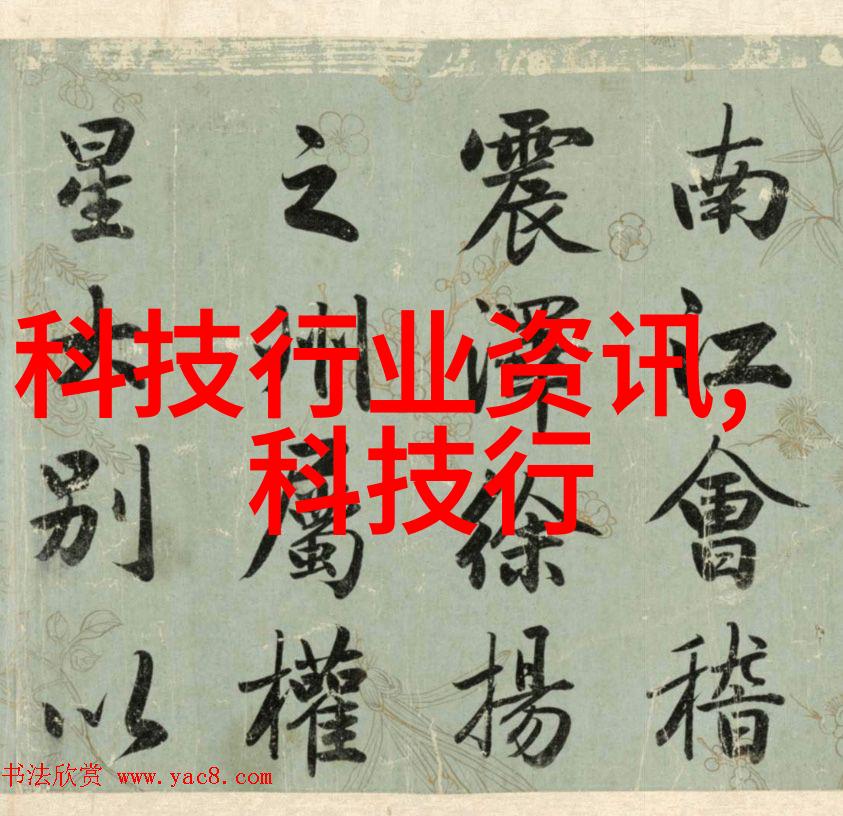 南江會稽
震澤徐揚
之州屬權
星大别以
科技行业资讯,
科技行
书法欣赏 www.yac8.com